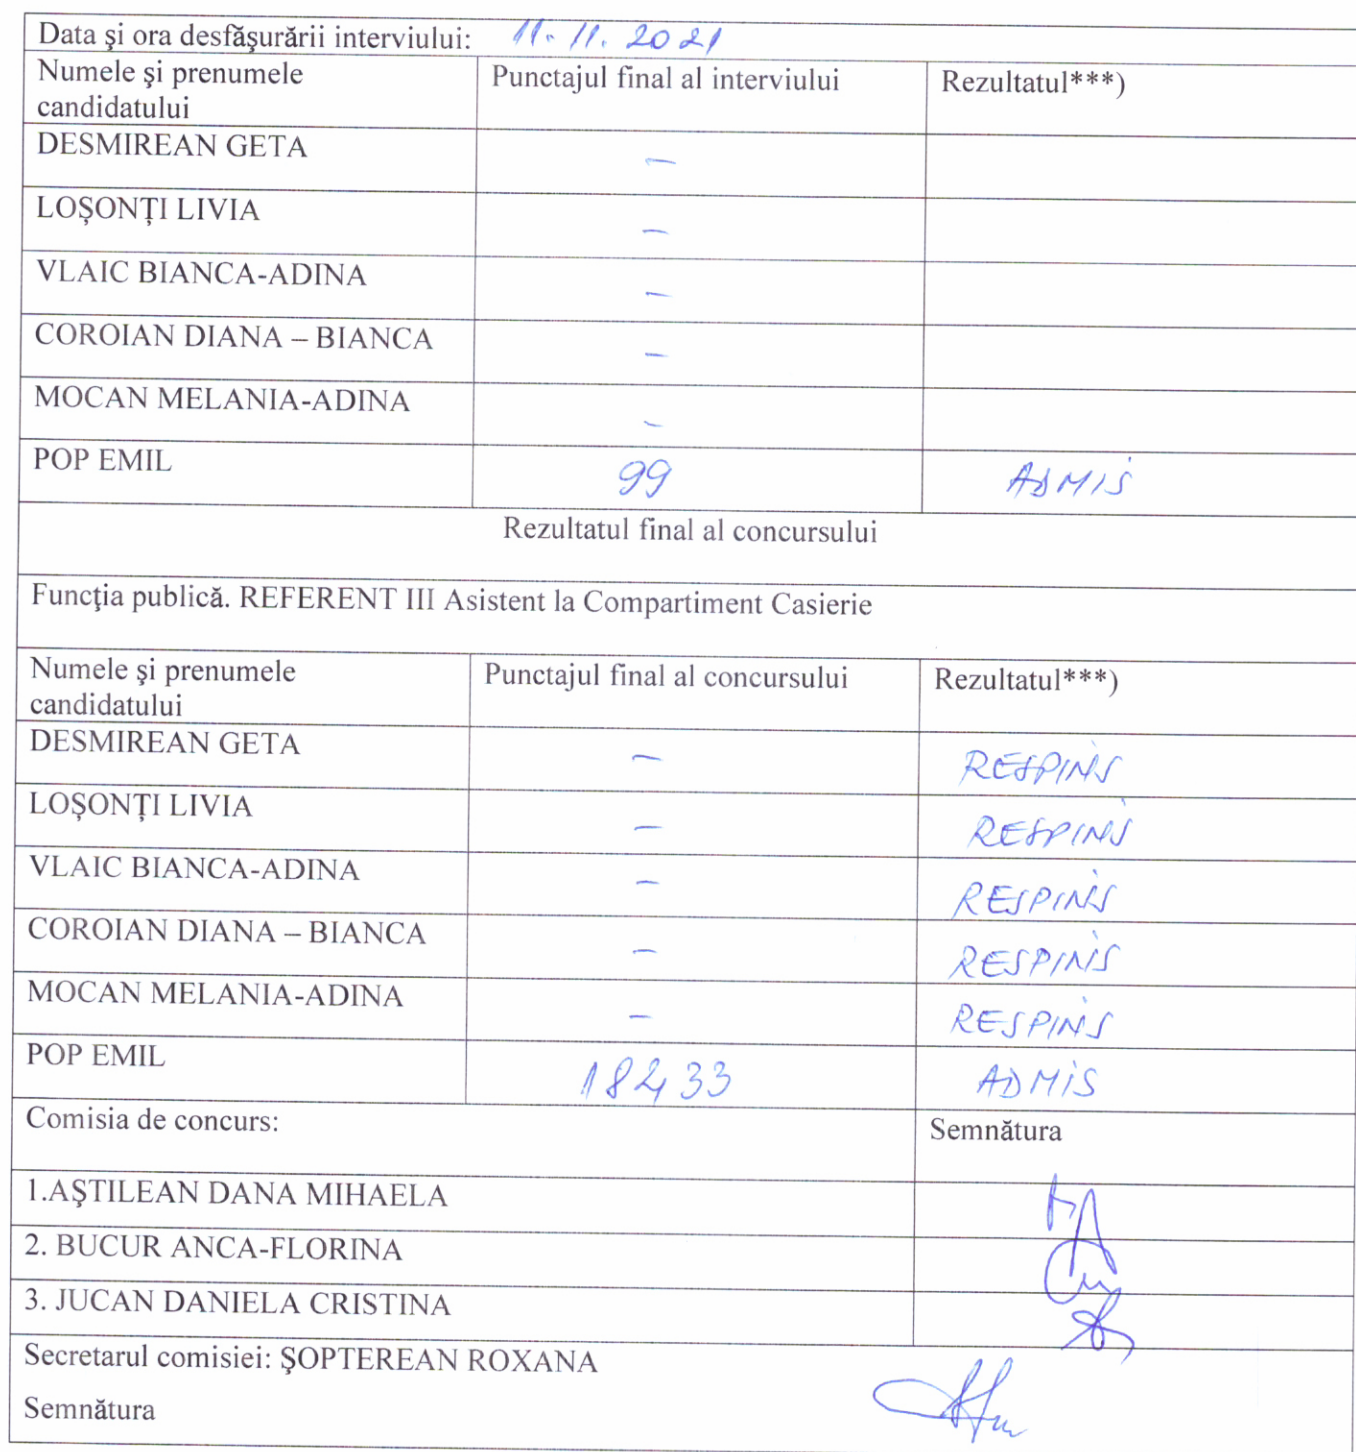 Data şi ora desfăşurării interviului: 11. 11. 2021
Numele şi prenumele candidatului Punctajul final al interviului Rezultatul***)
DESMIREAN GETA –
LOȘONȚI LIVIA –
VLAIC BIANCA-ADINA –
COROIAN DIANA – BIANCA –
MOCAN MELANIA-ADINA –
POP EMIL 99 ADMIS
Rezultatul final al concursului
Funcţia publică. REFERENT III Asistent la Compartiment Casierie
Numele şi prenumele candidatului Punctajul final al concursului Rezultatul***)
DESMIREAN GETA – RESPINS
LOȘONȚI LIVIA – RESPINS
VLAIC BIANCA-ADINA – RESPINS
COROIAN DIANA – BIANCA – RESPINS
MOCAN MELANIA-ADINA – RESPINS
POP EMIL 182,33 ADMIS
Comisia de concurs: Semnătura
1.AŞTILEAN DANA MIHAELA
2. BUCUR ANCA-FLORINA
3. JUCAN DANIELA CRISTINA
Secretarul comisiei: ŞOPTEREAN ROXANA
Semnătura